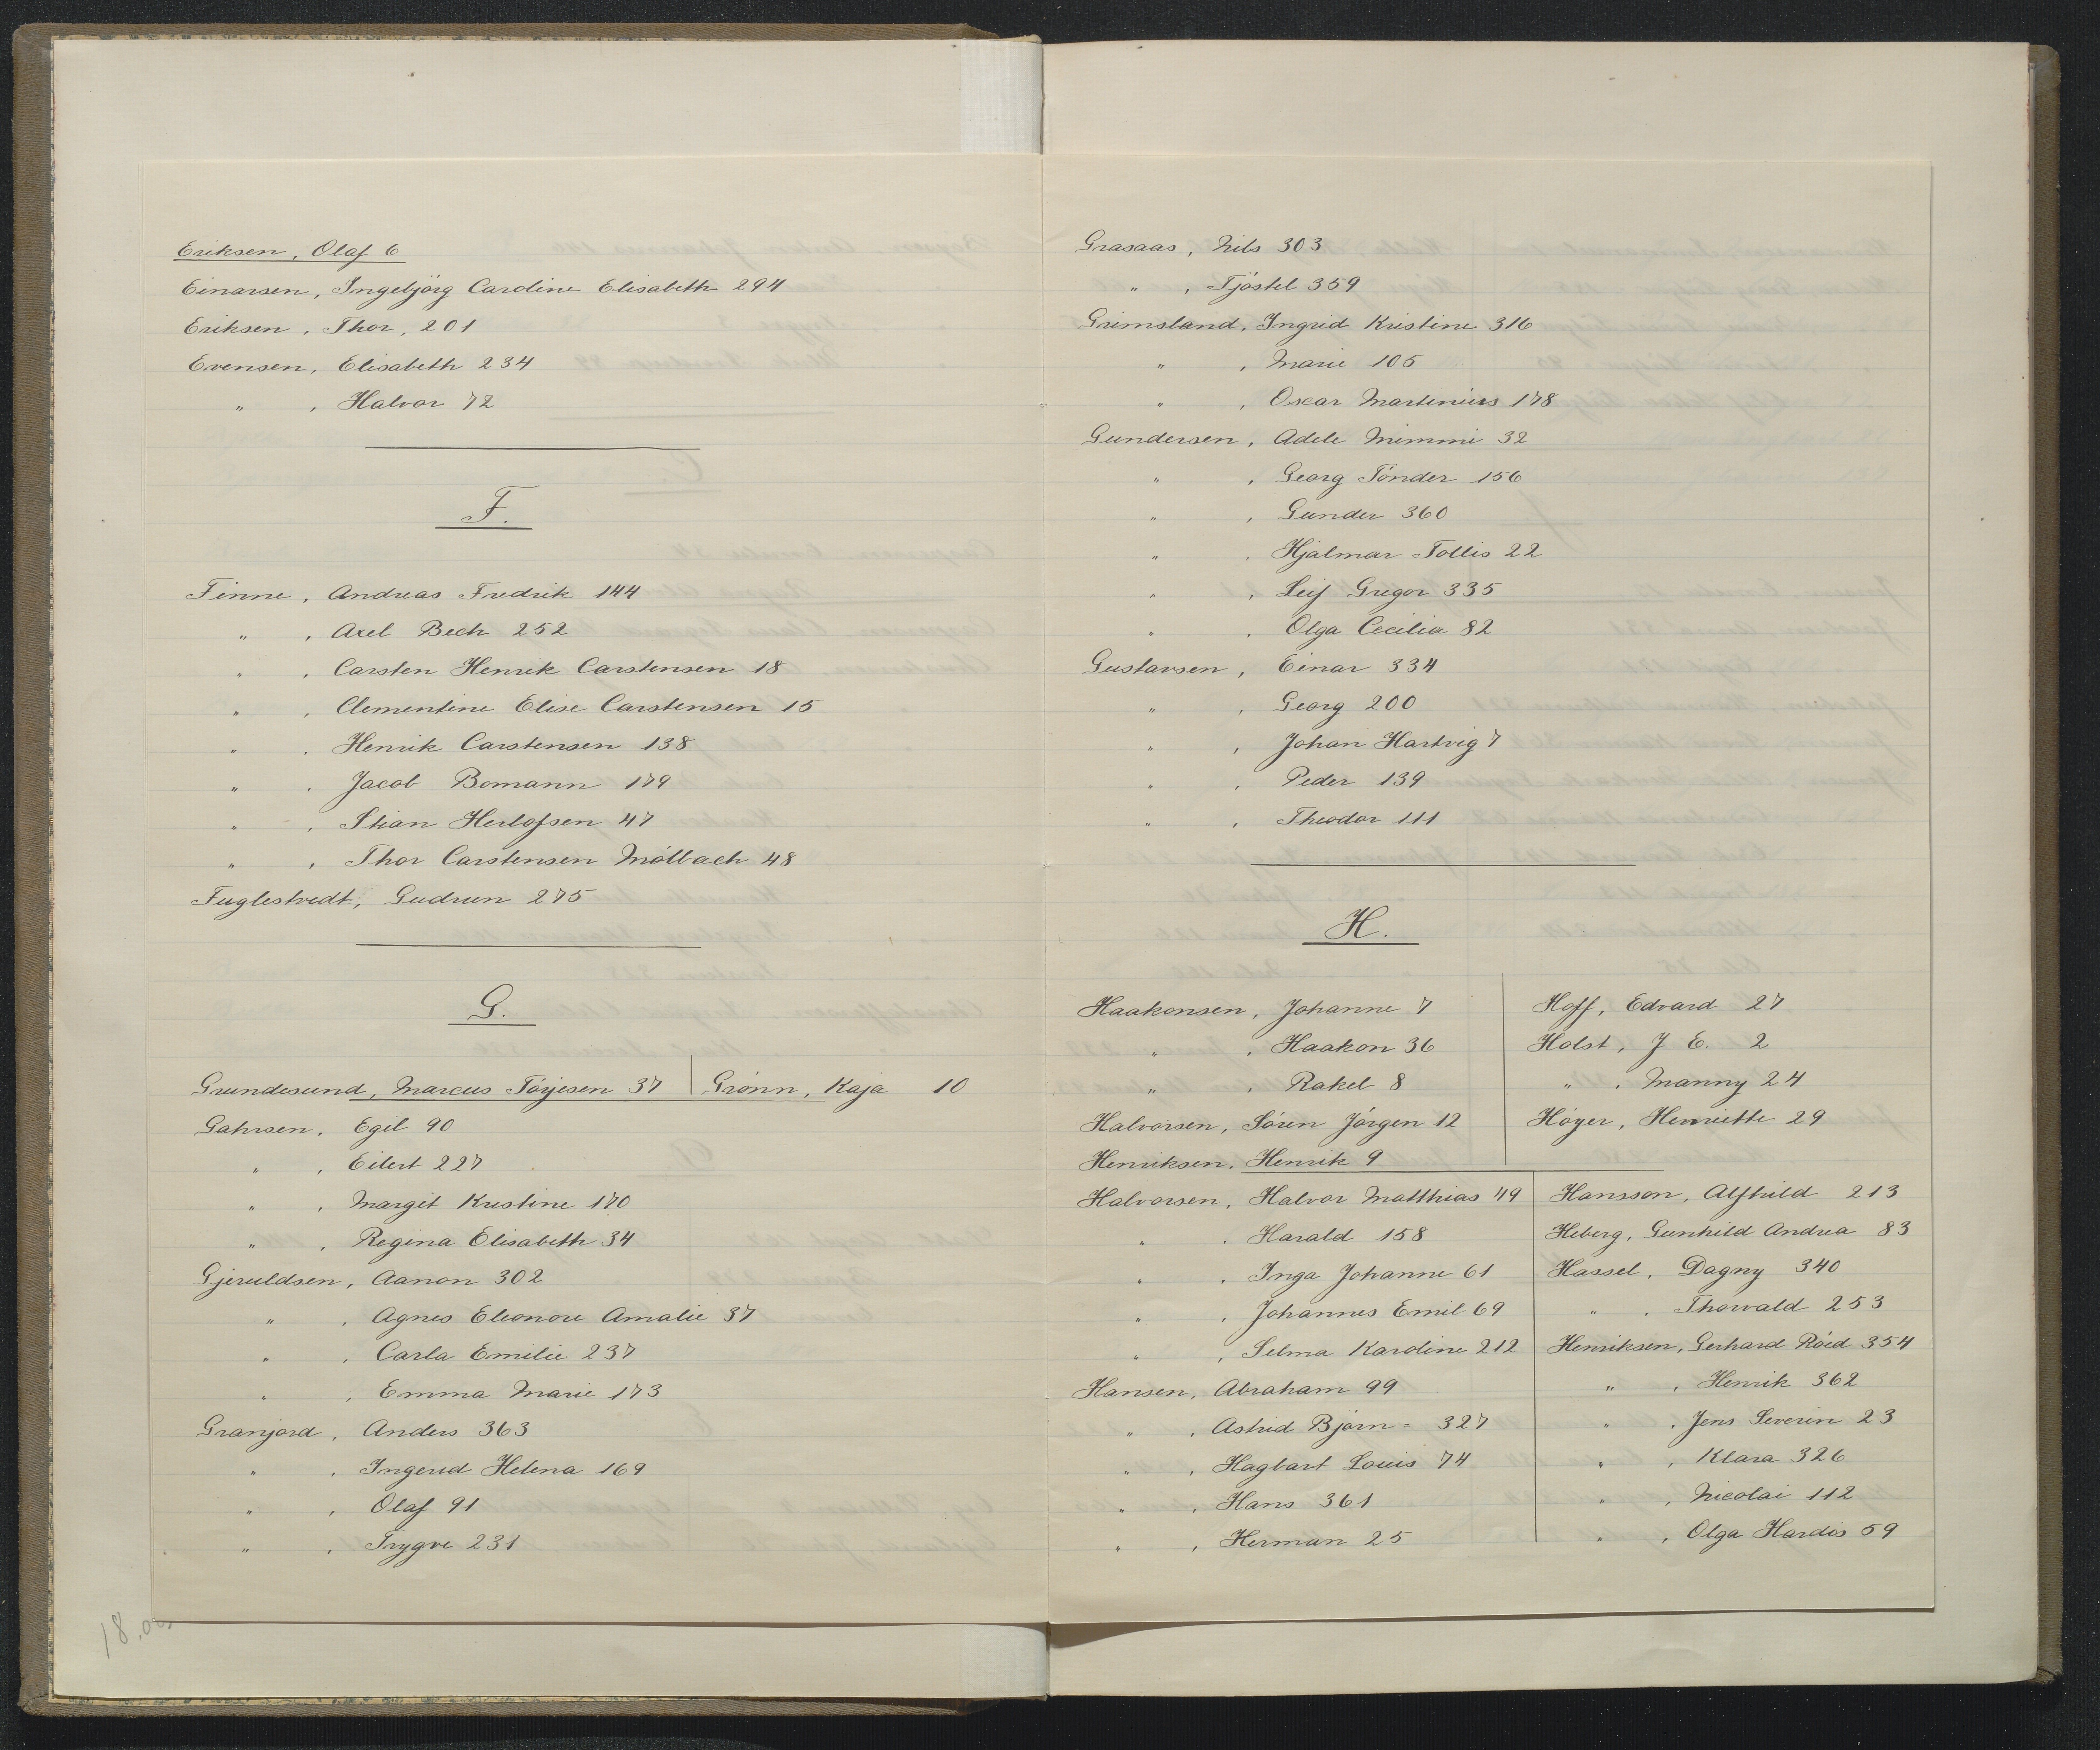 Eriksen, Olaf 6
Einarsen, Ingebjörg Caroline Elisabeth 294
Eriksen, Thor, 201
Evensen, Elisabeth 234
" , Halvor 72
F.
Finne, Andreas Fredrik 144
" , Axel Bech 252
" , Carsten Henrik Carstensen 18
" , Clementine Elise Carstensen 15
" , Henrik Carstensen 138
" , Jacob Bomann 179
" , Stian Herlofsen 47
" , Thor Carstensen Mölbach 48
Fuglestvedt, Gudrun 275
G.
Grundesund, Marcus Töyesen 37 | Grönn, Kaja 10
Gahrsen, Egil 90
" , Eilert 227
" , Margit Kristine 170
" , Regina Elisabeth 34
Gjeruldsen, Aanon 302
" , Agnes Eleonore Amalie 37
" , Carla Emilie 237
" , Emma Marie 173
Granjord, Anders 363
" , Ingerid Helena 169
" , Olaf 91
" , Trygve 231
18.00
Grasaas, Nils 303
" , Tjöstel 359
Grimsland, Ingrid Kristine 316
" , Marie 105
" , Oscar Martinius 178
Gundersen, Adele Mimmi 32
" , Georg Tönder 156
" , Gunder 360
" , Hjalmar Tollis 22
" , Leif Gregor 335
" , Olga Cecilia 82
Gustavsen, Einar 334
" , Georg 200
" , Johan Hartvig 7
" , Peder 139
" , Theodor 111
H.
Haakonsen, Johanne 7
" , Haakon 36
" , Rakel 8
Halvorsen, Sören Jörgen 12
Henriksen, Henrik 9
Hoff, Edvard 27
Holst, J E. 2
" , Manny 24
Höyer, Henriette 29
Halvorsen, Halvor Matthias 49
" , Harald 158
" , Inga Johanne 61
" , Johannes Emil 69
" , Selma Karoline 212
Hansen, Abraham 99
" , Astrid Björn- 327
" , Hagbart Louis 74
" , Hans 361
" , Herman 25
Hansson, Alfhild 213
Heberg, Gunhild Andrea 83
Hassel, Dagny 340
" , Thorvald 253
Henriksen, Gerhard Röed 354
" , Henrik 362
" , Jens Severin 23
" , Klara 326
" , Nicolai 112
" , Olga Hardis 59